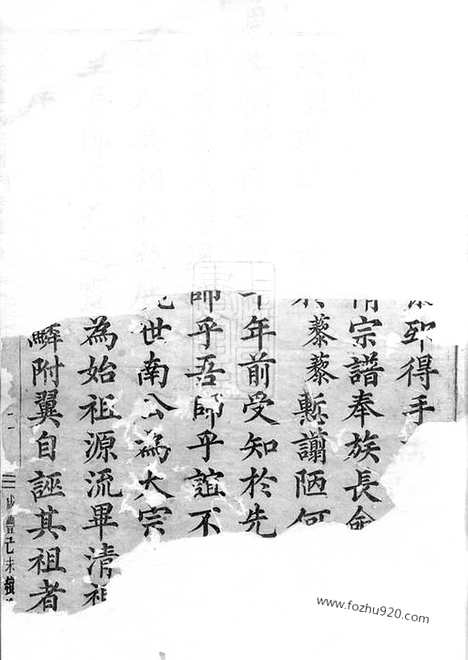 即得手
宗譜奉族長命
藜藜慙謭陋何
年前受知於先
師乎吾師乎誼不
世南公為大宗
為始祖源流畢清祖
附翼自誣其祖者
咸豐己未
www.fozhu920.com